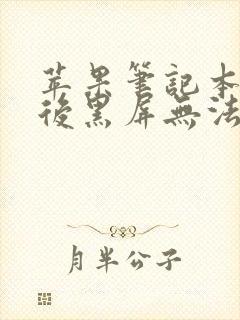 苹果筆記本
後黑屏無法
月半公子